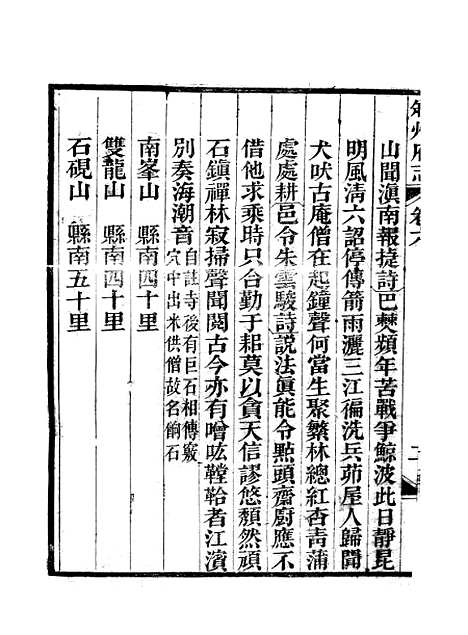 叙州府志 卷六
山聞滇南報捷詩巴僰頻年苦戰爭鯨波此日靜昆
明風清六詔停傳箭雨灑三江徧洗兵茆屋人歸聞
犬吠古庵僧在起鐘聲何當生聚繁林總紅杏青蒲
處處耕邑令朱雲駿詩說法眞能令點頭齋廚應不
借他求乘時只合勤于耜莫以貪天信謬悠頹然頑
石鎮禪林寂掃聲聞閱古今亦有噌吰鞺鞳者江濱
別奏海潮音自註寺後有巨石相傳竅穴中出米供僧故名餉石
南峯山　縣南四十里
雙龍山　縣南四十里
石硯山　縣南五十里